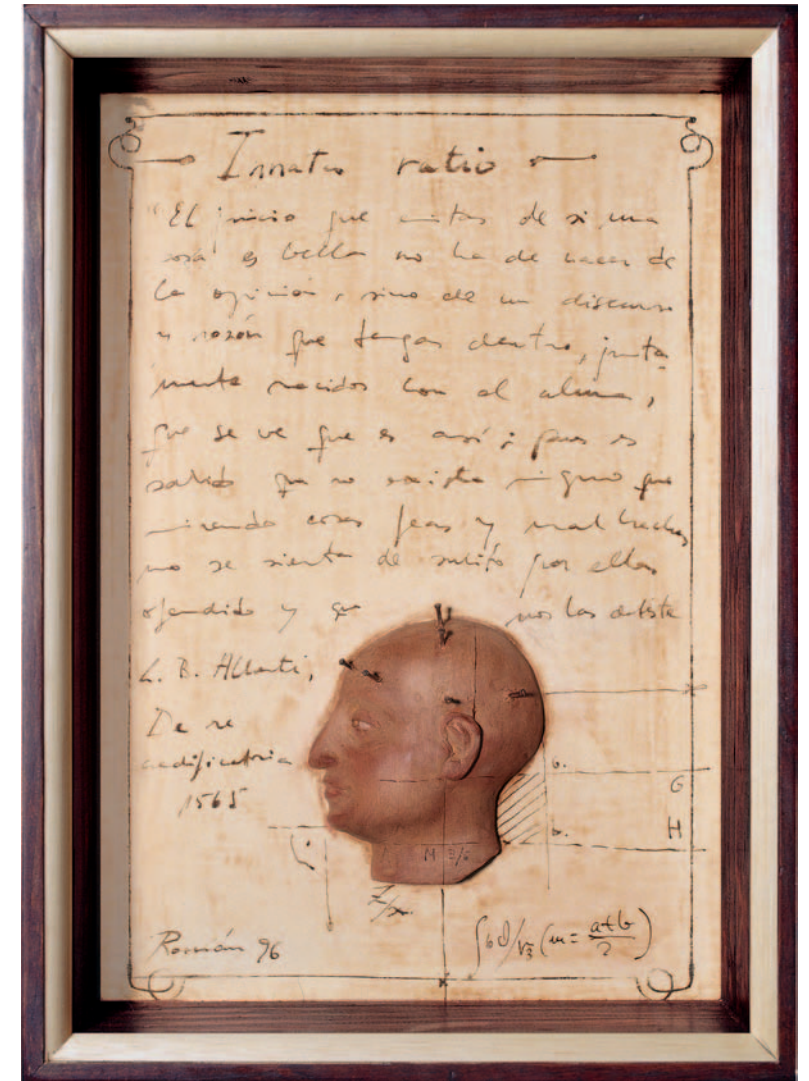 Innatus ratio
"El juicio que emitas de si una
cosa es bella no ha de nacer de
la opinión, sino de un discurso
y razón que tengas dentro, junta
mente nacidos con el alma,
que se ve que es así; pues es
sabido que no existe ninguno que
mirando cosas feas y mal hechas
no se sienta de subito por ellas
ofendido y que nos las deteste
L. B. Alberti,
De re
aedificatoria
1565
b.
G
b.
H
M 3/5
Román 96
(m = a+b/2)